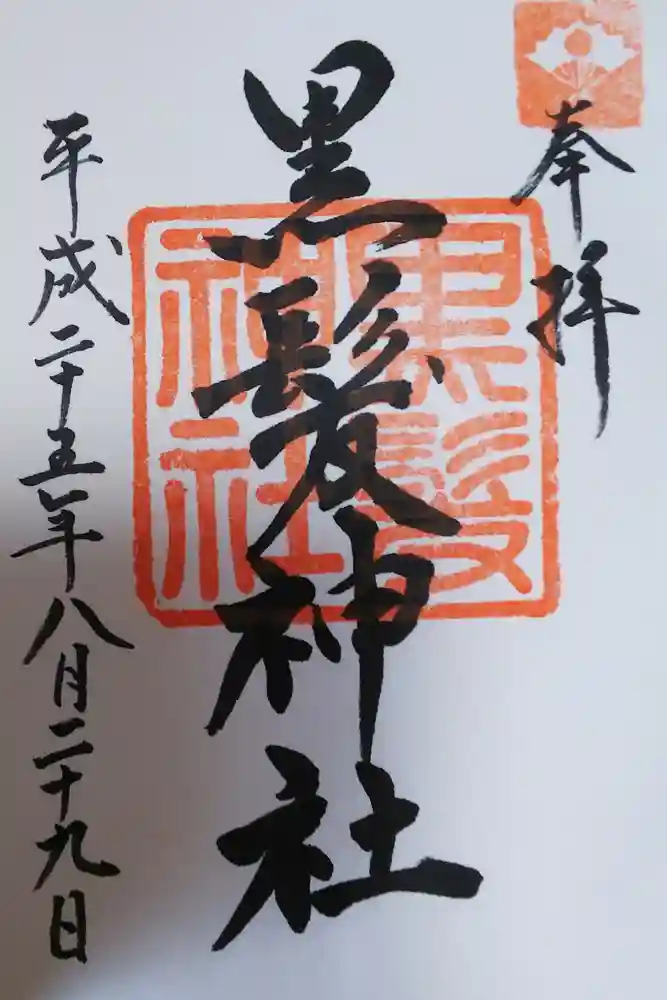 奉拝
黒髪神社
黒髪
神社
平成二十五年八月二十九日